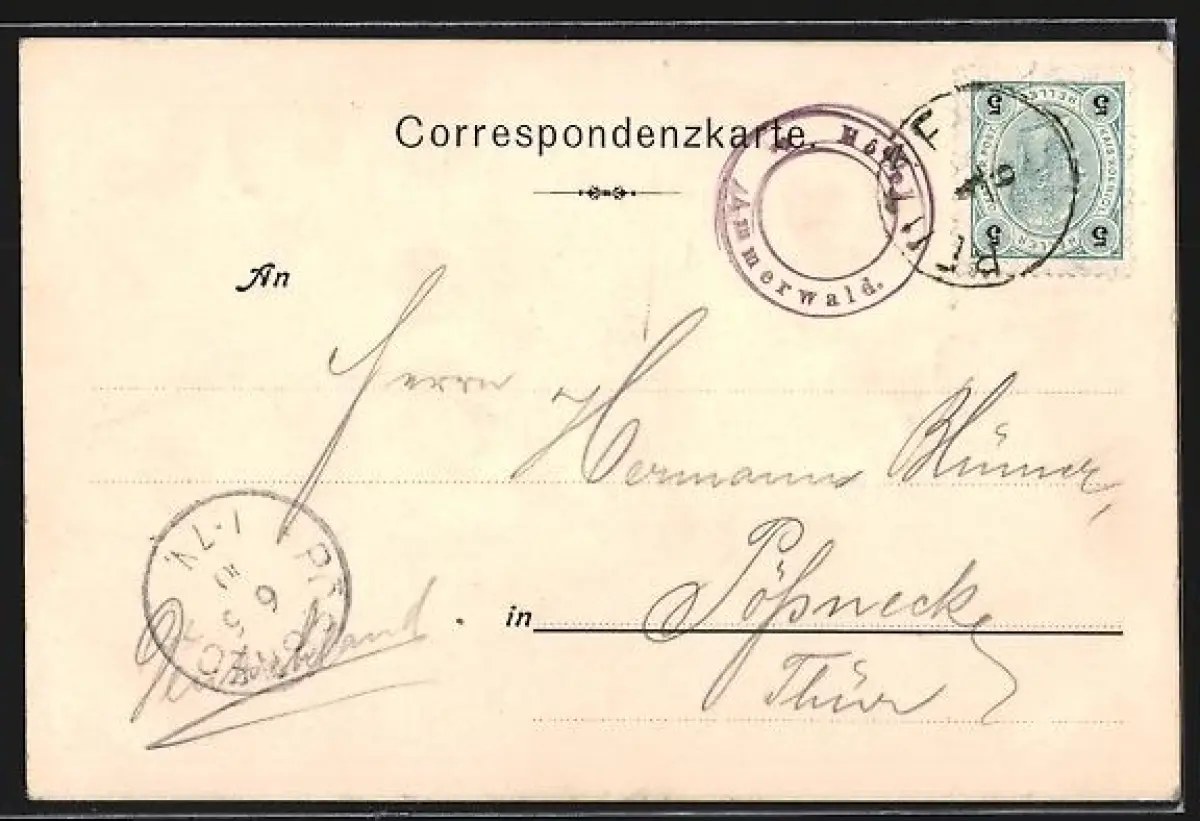 Correspondenzkarte.
Ammerwald.
5 HELLER 5
5 5
An
Herrn
Hermann Blümer,
in Pößneck
Thür